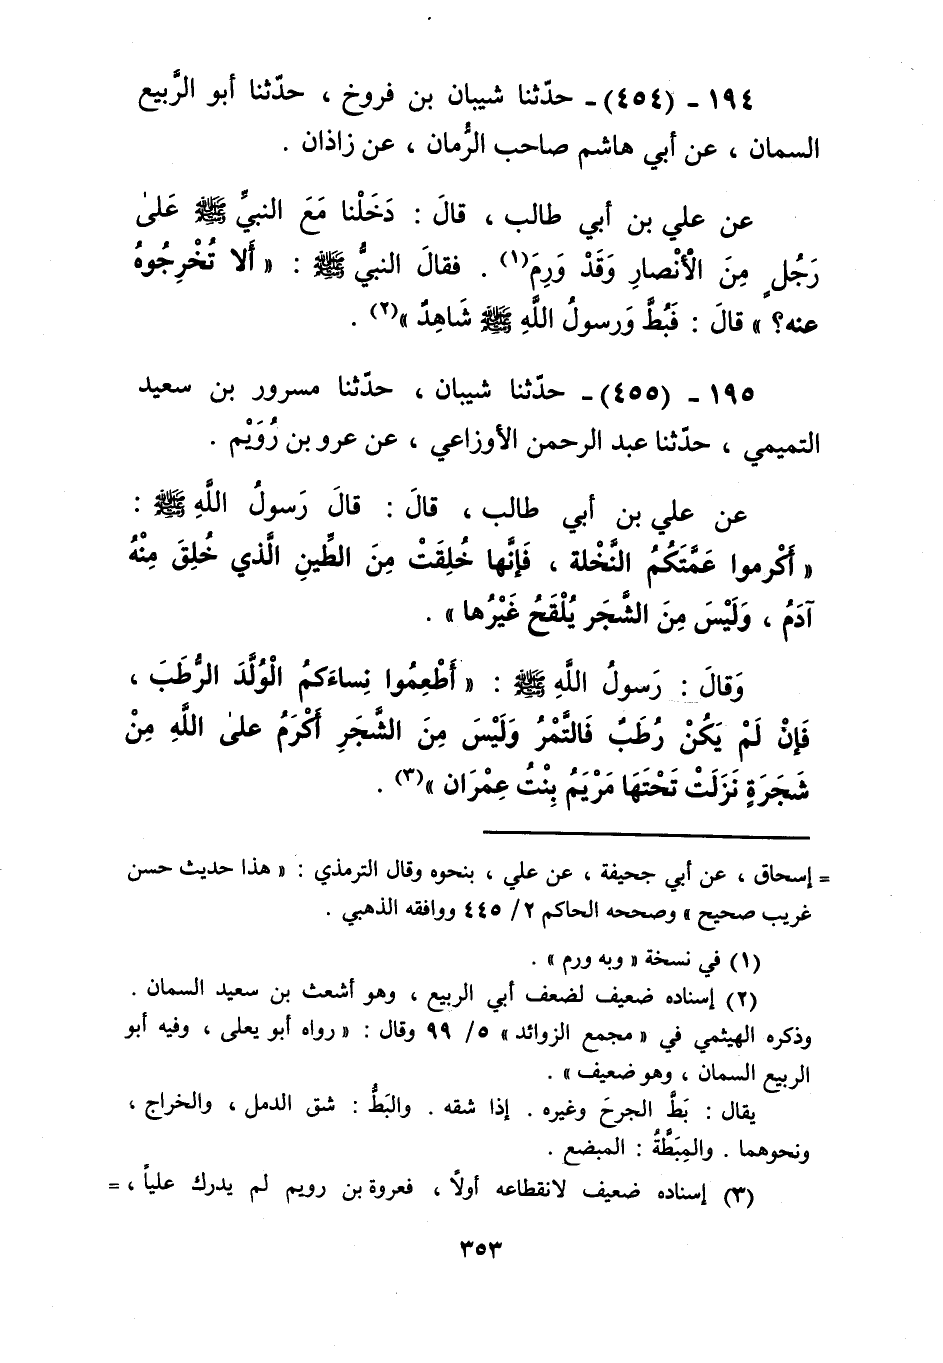 ١٩٤ - (٤٥٤) - حدّثنا شيبان بن فروخ ، حدّثنا أبو الرَّبيع
السمان ، عن أبي هاشم صاحب الرُّمان ، عن زاذان .
عن علي بن أبي طالب ، قالَ : دَخَلْنا مَعَ النبيِّ ﷺ عَلىٰ
رَجُلٍ مِنَ الْأنْصارِ وَقَدْ وَرِمَ(١) . فقالَ النبيُّ ﷺ : « أَلا تُخْرِجُوهُ
عنه؟ » قالَ : فَبُطَّ وَرسولُ اللَّهِ ﷺ شَاهِدٌ »(٢) .
١٩٥ - (٤٥٥) - حدّثنا شيبان ، حدّثنا مسرور بن سعيد
التميمي ، حدّثنا عبد الرحمن الأوزاعي ، عن عرو بن رُوَيْم .
عن علي بن أبي طالب ، قالَ : قالَ رَسولُ اللَّهِ ﷺ :
« أَكْرموا عَمَّتَكُمُ النَّخْلة ، فَإنَّها خُلِقَتْ مِنَ الطِّينِ الَّذي خُلِقَ مِنْهُ
آدَمُ ، وَلَيْسَ مِنَ الشَّجَر يُلْقَحُ غَيْرُها » .
وَقالَ : رَسولُ اللَّهِ ﷺ : « أَطْعِمُوا نِساءَكمُ الْوُلَّدَ الرُّطَبَ ،
فَإنْ لَمْ يَكُنْ رُطَبٌ فَالتَّمْرُ وَلَيْسَ مِنَ الشَّجَرِ أَكْرَمُ علىٰ اللَّهِ مِنْ
شَجَرَةٍ نَزَلَتْ تَحْتَهَا مَرْيَمُ بِنْتُ عِمْرَان »(٣) .
= إسحاق ، عن أبي جحيفة ، عن علي ، بنحوه وقال الترمذي : « هذا حديث حسن
غريب صحيح » وصححه الحاكم ٢ / ٤٤٥ ووافقه الذهبي .
(١) في نسخة « وبه ورم » .
(٢) إسناده ضعيف لضعف أبي الربيع ، وهو أشعث بن سعيد السمان .
وذكره الهيثمي في « مجمع الزوائد » ٥ / ٩٩ وقال : « رواه أبو يعلى ، وفيه أبو
الربيع السمان ، وهو ضعيف » .
يقال : بَطَّ الجرحَ وغيره . إذا شقه . والبَطُّ : شق الدمل ، والخراج ،
ونحوهما . والمِبَطَّةُ : المبضع .
(٣) إسناده ضعيف لانقطاعه أولًا ، فعروة بن رويم لم يدرك علياً ، =
٣٥٣